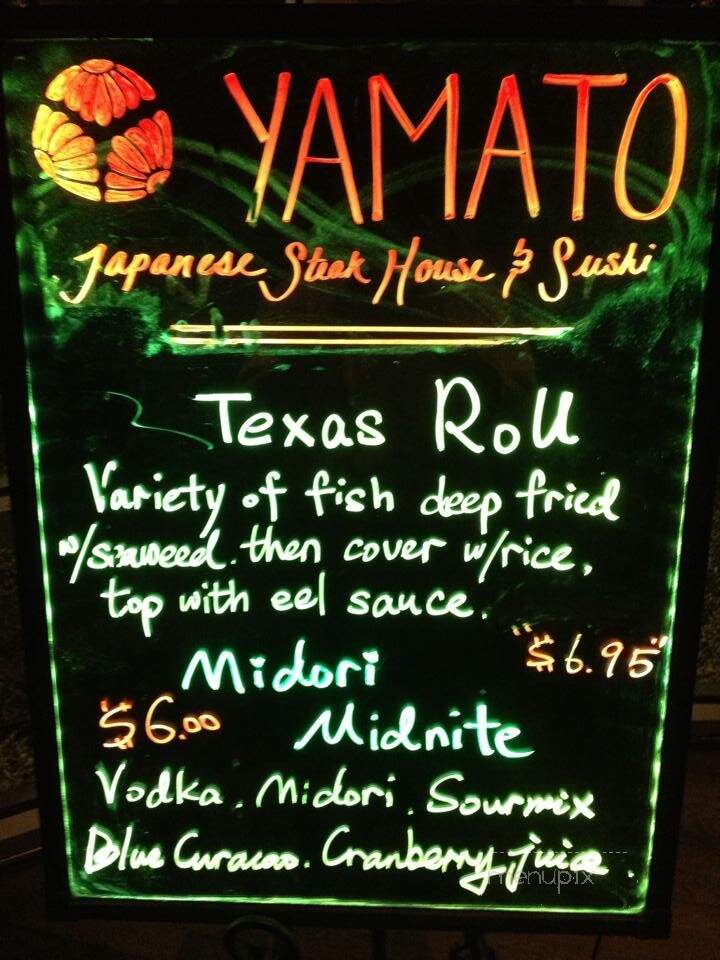 YAMATO
Japanese Steak House & Sushi
Texas Roll
Variety of fish deep fried
w/seaweed. then cover w/rice,
top with eel sauce.
"$6.95"
Midori
$6.00 Midnite
Vodka. Midori. Sourmix
Blue Curacao. Cranberry juice.
menupix